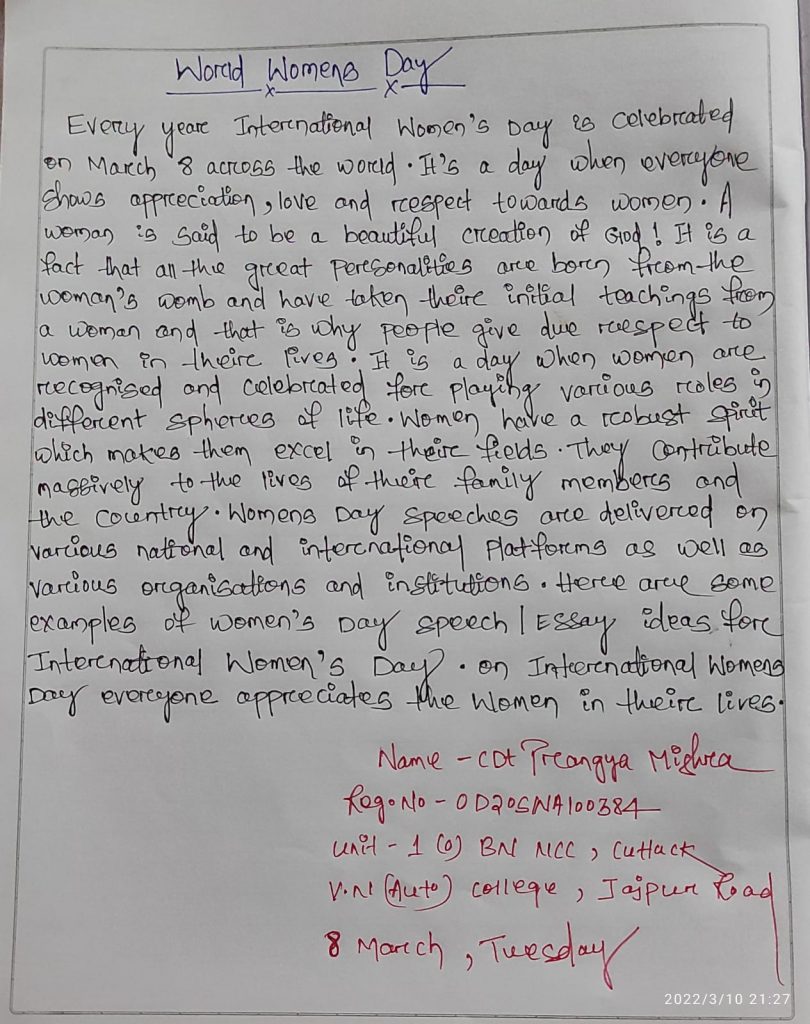 World Womens Day
Every year International Women's Day is celebrated
on March 8 across the world. It's a day when everyone
shows appreciation, love and respect towards women. A
woman is said to be a beautiful creation of God! It is a
fact that all the great personalities are born from the
woman's womb and have taken their initial teachings from
a woman and that is why people give due respect to
women in their lives. It is a day when women are
recognised and celebrated for playing various roles in
different spheres of life. Women have a robust spirit
which makes them excel in their fields. They contribute
massively to the lives of their family members and
the country. Womens Day speeches are delivered on
various national and international platforms as well as
various organisations and institutions. Here are some
examples of women's Day speech | Essay ideas for
International Women's Day. on International Womens
Day everyone appreciates the Women in their lives.
Name - CDt Prangya Mishra
Reg. No - OD20SNA100384
Unit - 1 (O) BN NCC, Cuttack
V.N (Auto) college, Jajpur Road
8 March, Tuesday
2022/3/10 21:27